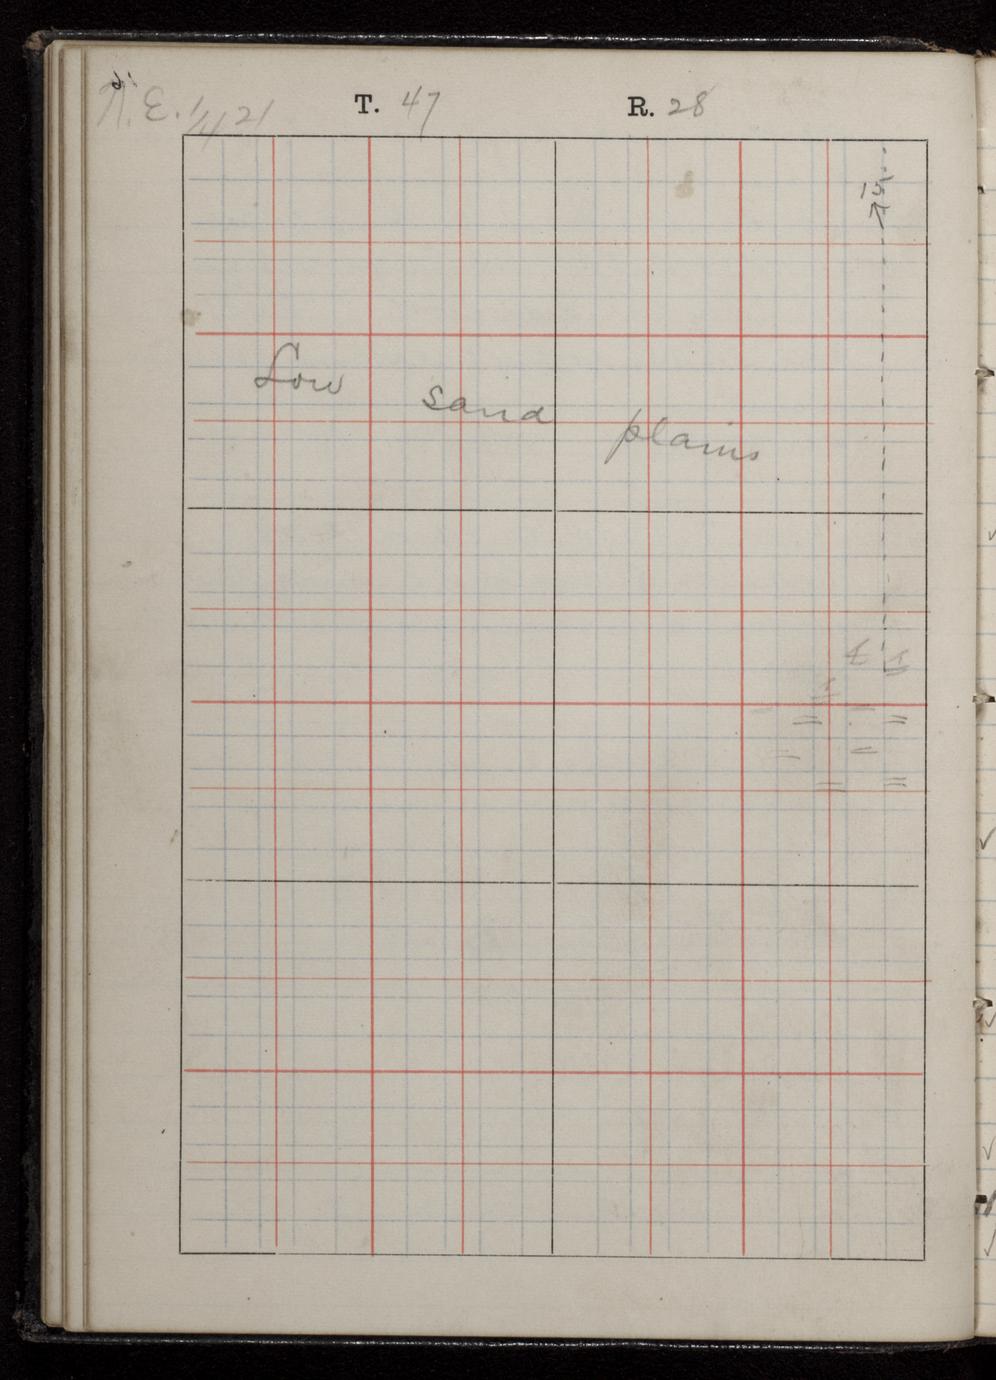 N.E. 1/4 21 T. 47 R. 28
Low sand plains